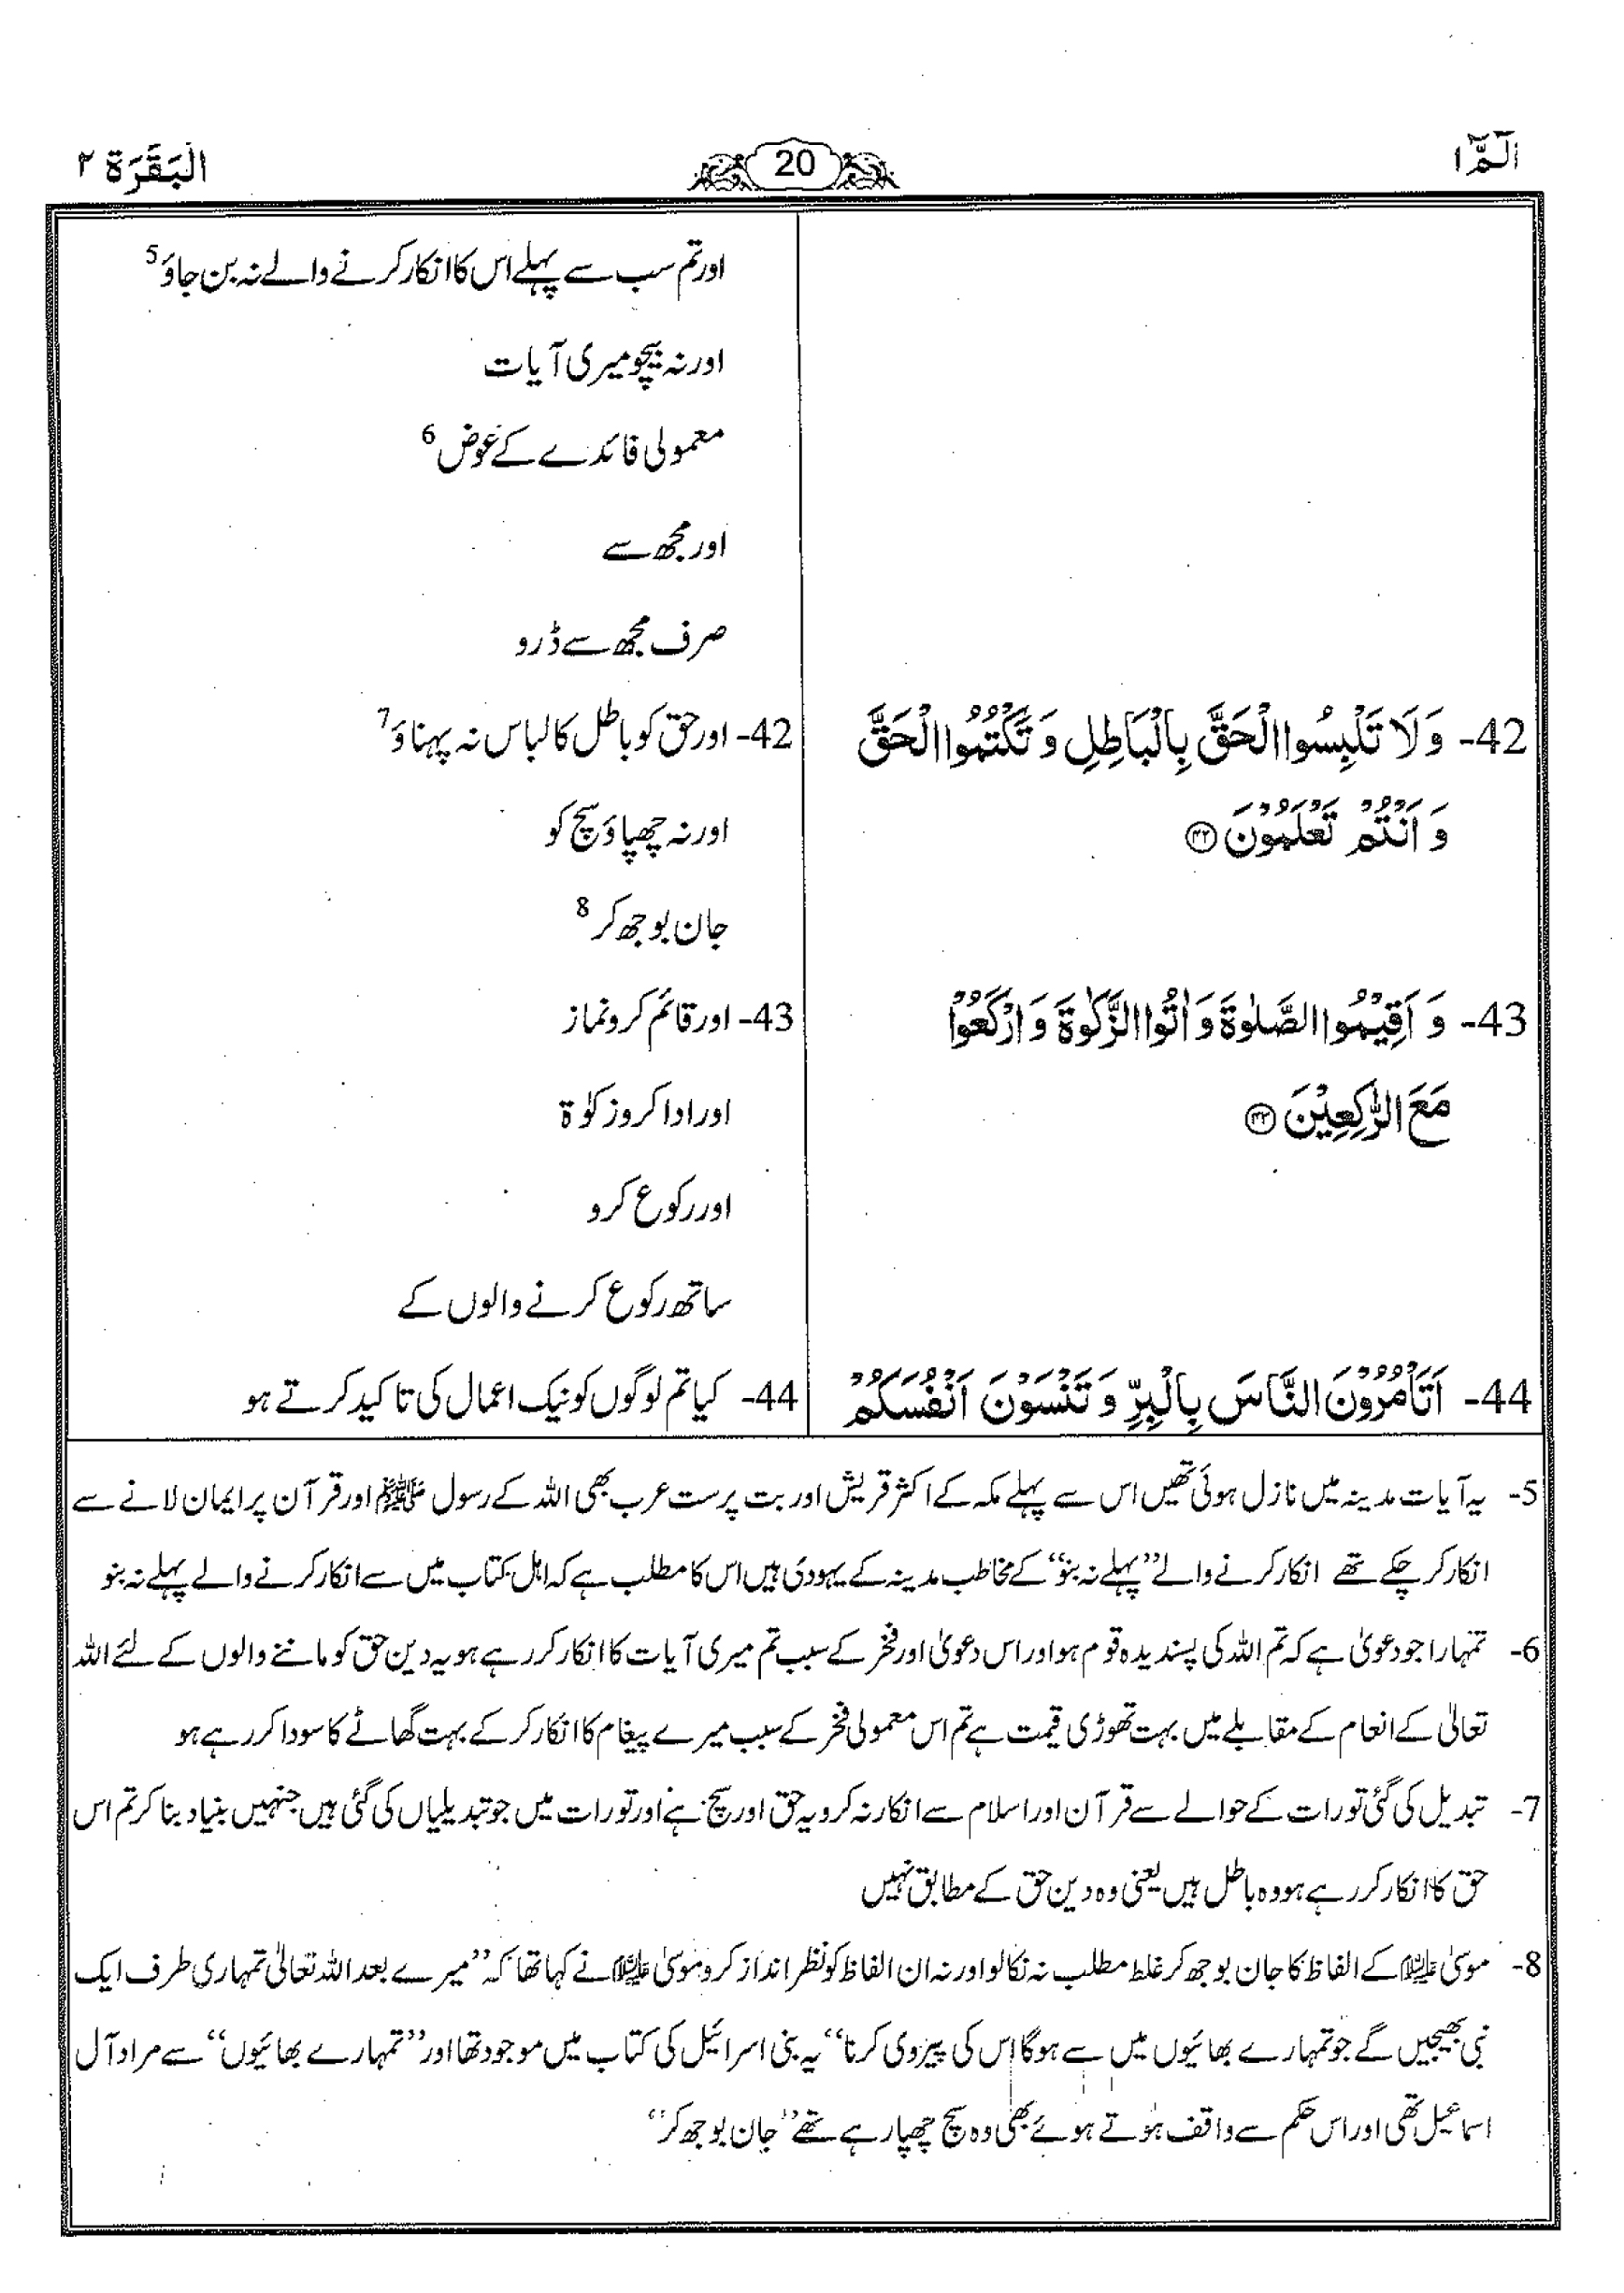 الٓمّٓ ١
20
الْبَقَرَة ٢
اور تم سب سے پہلے اس کا انکار کرنے والے نہ بن جاؤ 5
اور نہ بیچو میری آیات
معمولی فائدے کے عوض 6
اور مجھ سے
صرف مجھ سے ڈرو
42- وَلَا تَلْبِسُوا الْحَقَّ بِالْبَاطِلِ وَ تَكْتُمُوا الْحَقَّ
وَ اَنْتُمْ تَعْلَمُوْنَ ۝۴۲
42- اور حق کو باطل کا لباس نہ پہناؤ 7
اور نہ چھپاؤ سچ کو
جان بوجھ کر 8
43- وَ اَقِيْمُوا الصَّلٰوةَ وَ اٰتُوا الزَّكٰوةَ وَ ارْكَعُوْا
مَعَ الرّٰكِعِيْنَ ۝۴۳
43- اور قائم کرو نماز
اور ادا کرو زکوٰۃ
اور رکوع کرو
ساتھ رکوع کرنے والوں کے
44- اَتَاْمُرُوْنَ النَّاسَ بِالْبِرِّ وَ تَنْسَوْنَ اَنْفُسَكُمْ
44- کیا تم لوگوں کو نیک اعمال کی تاکید کرتے ہو
5- یہ آیات مدینہ میں نازل ہوئی تھیں اس سے پہلے مکہ کے اکثر قریش اور بت پرست عرب بھی اللہ کے رسول ﷺ اور قرآن پر ایمان لانے سے
انکار کر چکے تھے انکار کرنے والے ’’پہلے نہ بنو‘‘ کے مخاطب مدینہ کے یہودی ہیں اس کا مطلب ہے کہ اہل کتاب میں سے انکار کرنے والے پہلے نہ بنو
6- تمہارا جو دعویٰ ہے کہ تم اللہ کی پسندیدہ قوم ہو اور اس دعویٰ اور فخر کے سبب تم میری آیات کا انکار کر رہے ہو یہ دین حق کو ماننے والوں کے لئے اللہ
تعالیٰ کے انعام کے مقابلے میں بہت تھوڑی قیمت ہے تم اس معمولی فخر کے سبب میرے پیغام کا انکار کر کے بہت گھاٹے کا سودا کر رہے ہو
7- تبدیل کی گئی تورات کے حوالے سے قرآن اور اسلام سے انکار نہ کرو یہ حق اور سچ ہے اور تورات میں جو تبدیلیاں کی گئی ہیں جنہیں بنیاد بنا کر تم اس
حق کا انکار کر رہے ہو وہ باطل ہیں یعنی وہ دین حق کے مطابق نہیں
8- موسیٰ علیہ السلام کے الفاظ کا جان بوجھ کر غلط مطلب نہ نکالو اور نہ ان الفاظ کو نظر انداز کرو موسیٰ علیہ السلام نے کہا تھا کہ ’’میرے بعد اللہ تعالیٰ تمہاری طرف ایک
نبی بھیجیں گے جو تمہارے بھائیوں میں سے ہوگا اس کی پیروی کرنا‘‘ یہ بنی اسرائیل کی کتاب میں موجود تھا اور ’’تمہارے بھائیوں‘‘ سے مراد آل
اسماعیل تھی اور اس حکم سے واقف ہوتے ہوئے بھی وہ سچ چھپا رہے تھے ’’جان بوجھ کر‘‘